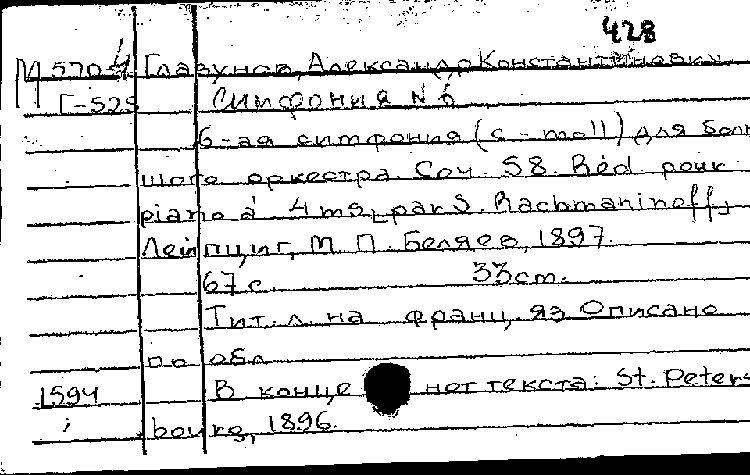 428
М 570-4 Глазунов, Александр Константинович
Г-525 Симфония № 6
6-ая симфония (c-moll) для боль
шого оркестра. Соч. 58. Réd. pour
piano à 4 ms [par S. Rachmaninoff]
Лейпциг, М. П. Беляев, 1897.
67 с. 33 cm.
Тит. л. на франц. яз. Описано
по обл.
1594 В конце нот текста: St. Peters
bourg, 1896.